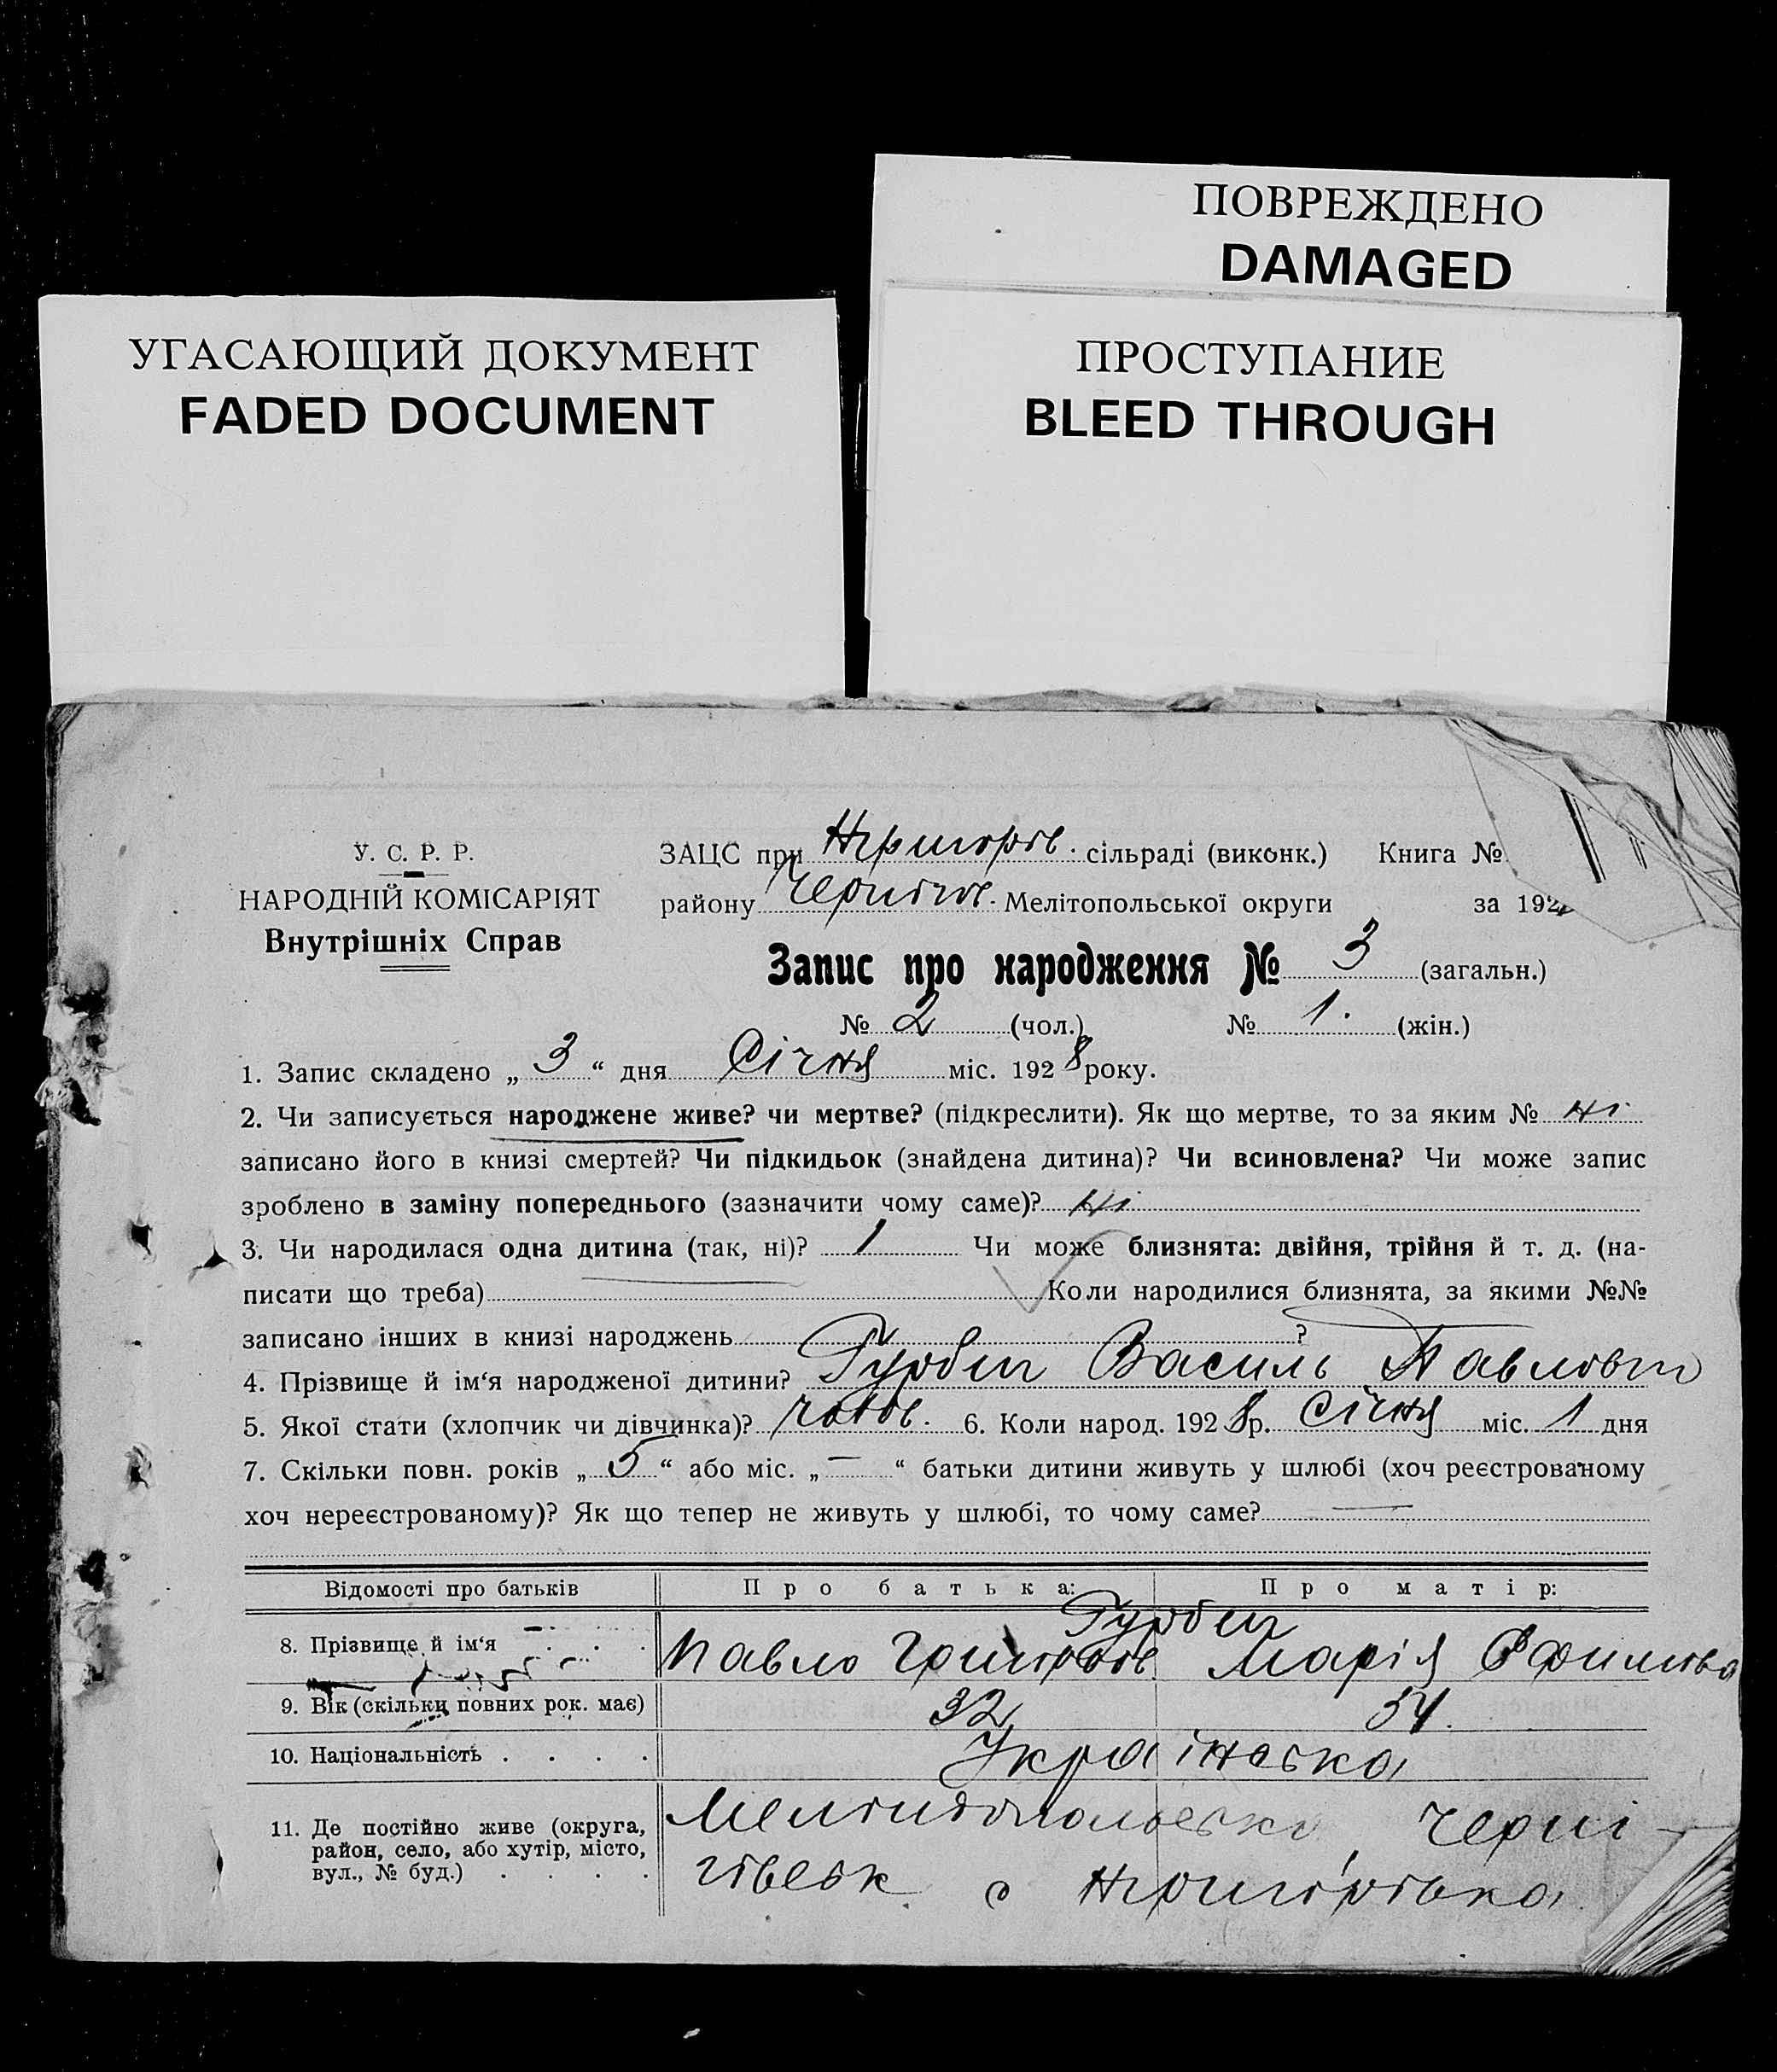 ПОВРЕЖДЕНО
DAMAGED
УГАСАЮЩИЙ ДОКУМЕНТ
FADED DOCUMENT
ПРОСТУПАНИЕ
BLEED THROUGH
У. С. Р. Р.
НАРОДНІЙ КОМІСАРІЯТ
Внутрішніх Справ
ЗАЦС при сільраді (виконк.) Книга №
району Черніг. Мелітопольської округи за 192
Запис про народження № 3 (загальн.)
№ 2 (чол.) № 1. (жін.)
1. Запис складено „ 3 “ дня Січня міс. 1928 року.
2. Чи записується народжене живе? чи мертве? (підкреслити). Як що мертве, то за яким № ні
записано його в книзі смертей? Чи підкидьок (знайдена дитина)? Чи всиновлена? Чи може запис
зроблено в заміну попереднього (зазначити чому саме)? ні
3. Чи народилася одна дитина (так, ні)? 1 Чи може близнята: двійня, трійня й т. д. (на-
писати що треба) Коли народилися близнята, за якими №№
записано інших в книзі народжень ?
4. Прізвище й ім‘я народженої дитини? Василь Павлович
5. Якої стати (хлопчик чи дівчинка)? чолов. 6. Коли народ. 1928 р. Січня міс. 1 дня
7. Скільки повн. років „ 5 “ або міс. „ — “ батьки дитини живуть у шлюбі (хоч реєстрованому
хоч нереєстрованому)? Як що тепер не живуть у шлюбі, то чому саме? —
Відомості про батьків Про батька: Про матір:
8. Прізвище й ім‘я . . . Павло Григоров. Марія
9. Вік (скільки повних рок. має) 32
10. Національність . . . . Українська
11. Де постійно живе (округа,
район, село, або хутір, місто,
вул., № буд.) . . . .
Черні
гівськ с